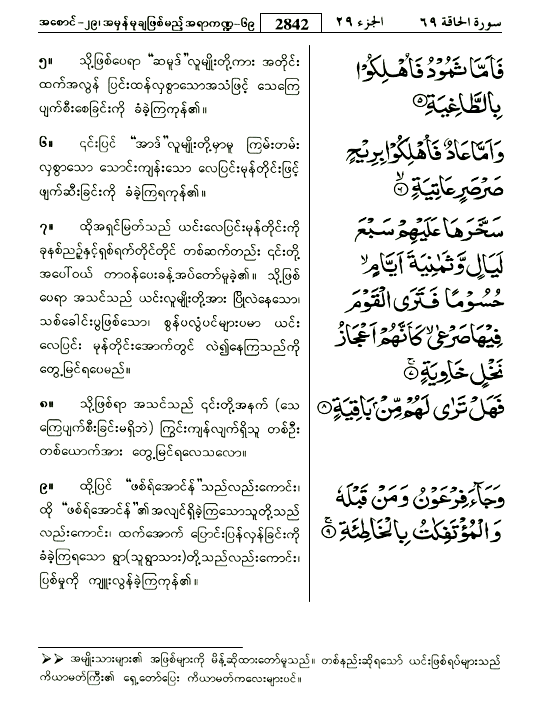 အစောင်-၂၉၊ အမှန်မုချဖြစ်မည့် အရာကဏ္ဍ-၆၉ 2842 الجزء ٢٩ سورة الحاقة ٦٩
၅။ သို့ဖြစ်ပေရာ “ဆမူဒ်”လူမျိုးတို့ကား အတိုင်း
ထက်အလွန် ပြင်းထန်လှစွာသောအသံဖြင့် သေကြေ
ပျက်စီးစေခြင်းကို ခံခဲ့ကြကုန်၏။
فَاَمَّا ثَمُوْدُ فَاُهْلِكُوْا
بِالطَّاغِيَةِ ۝٥
၆။ ၎င်းပြင် “အာဒ်”လူမျိုးတို့မှာမူ ကြမ်းတမ်း
လှစွာသော သောင်းကျန်းသော လေပြင်းမုန်တိုင်းဖြင့်
ဖျက်ဆီးခြင်းကို ခံခဲ့ကြရကုန်၏။
وَاَمَّا عَادٌ فَاُهْلِكُوْا بِرِيْحٍ
صَرْصَرٍ عَاتِيَةٍ ۙ۝٦
၇။ ထိုအရှင်မြတ်သည် ယင်းလေပြင်းမုန်တိုင်းကို
ခုနစ်ညဉ့်နှင့်ရှစ်ရက်တိုင်တိုင် တစ်ဆက်တည်း ၎င်းတို့
အပေါ်ဝယ် တာဝန်ပေးခန့်အပ်တော်မူခဲ့၏။ သို့ဖြစ်
ပေရာ အသင်သည် ယင်းလူမျိုးတို့အား ပြိုလဲနေသော၊
သစ်ခေါင်းပွဖြစ်သော၊ စွန်ပလွံပင်များပမာ ယင်း
လေပြင်း မုန်တိုင်းအောက်တွင် လဲ၍နေကြသည်ကို
တွေ့မြင်ရပေမည်။
سَخَّرَهَا عَلَيْهِمْ سَبْعَ
لَيَالٍ وَّثَمٰنِيَةَ اَيَّامٍ ۙ
حُسُوْمًا فَتَرَى الْقَوْمَ
فِيْهَا صَرْعٰى ۙ كَاَنَّهُمْ اَعْجَازُ
نَخْلٍ خَاوِيَةٍ ۚ۝٧
၈။ သို့ဖြစ်ရာ အသင်သည် ၎င်းတို့အနက် (သေ
ကြေပျက်စီးခြင်းမရှိဘဲ) ကြွင်းကျန်လျက်ရှိသူ တစ်ဦး
တစ်ယောက်အား တွေ့မြင်ရလေသလော။
فَهَلْ تَرٰى لَهُمْ مِّنْۢ بَاقِيَةٍ ۝٨
၉။ ထို့ပြင် “ဖစ်ရ်အောင်န်”သည်လည်းကောင်း၊
ထို “ဖစ်ရ်အောင်န်”၏အလျင်ရှိခဲ့ကြသောသူတို့သည်
လည်းကောင်း၊ ထက်အောက် ပြောင်းပြန်လှန်ခြင်းကို
ခံခဲ့ကြရသော ရွာ(သူရွာသား)တို့သည်လည်းကောင်း၊
ပြစ်မှုကို ကျူးလွန်ခဲ့ကြကုန်၏။
وَجَآءَ فِرْعَوْنُ وَمَنْ قَبْلَهٗ
وَالْمُؤْتَفِكٰتُ بِالْخَاطِئَةِ ۚ۝٩
➢➢ အမျိုးသားများ၏ အဖြစ်များကို မိန့်ဆိုထားတော်မူသည်။ တစ်နည်းဆိုရသော် ယင်းဖြစ်ရပ်များသည်
ကိယာမတ်ကြီး၏ ရှေ့တော်ပြေး ကိယာမတ်ကလေးများပင်။